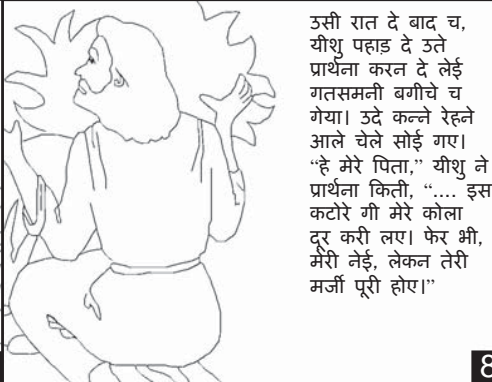 उसी रात दे बाद च,
यीशु पहाड़ दे उते
प्रार्थना करन दे लेई
गतसमनी बगीचे च
गेया। उदे कन्ने रेहने
आले चेले सोई गए।
“हे मेरे पिता,” यीशु ने
प्रार्थना किती, “.... इस
कटोरे गी मेरे कोला
दूर करी लए। फेर भी,
मेरी नेई, लेकन तेरी
मर्जी पूरी होए।”
8